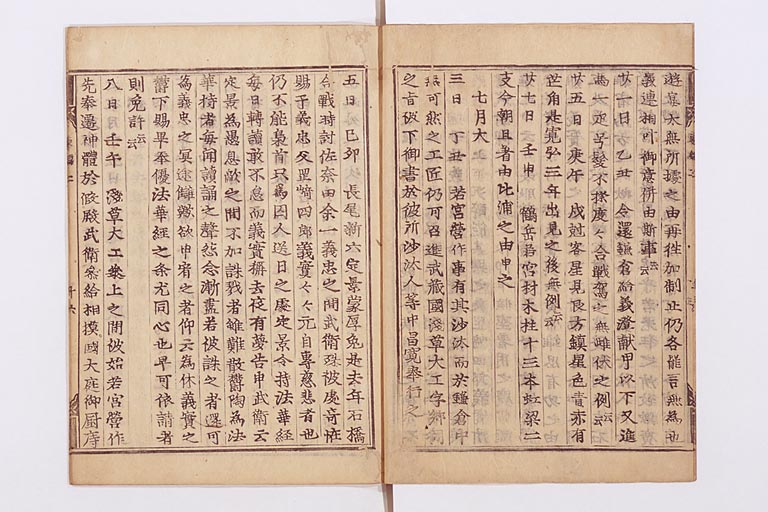 遊宴太無所據之由再往加制止仍各罷言無為也
義連相叶御意併由斯事云云
日乙丑令還鎌倉給義澄献甲以下又進
馬大号髪不撓度々合戦駕之無雌伏之例云云
廿五日庚午戌尅客星見艮方鎮星色青赤有
芒角是寛弘三年出見之後無例云云
廿七日壬申鶴岳若宮材木柱十三本虹梁二
支今朝且着由比浦之由申之
七月大
三日丁丑若宮營作事有其沙汰而於鎌倉中
無可然之工匠仍可召進武蔵國浅草大工字郷司
之旨被下御書於彼所沙汰人等中昌寛奉行之
五日己卯長尾新六定景蒙厚免是去年石橋
合戦時討佐奈田余一義忠之間武衛殊被處奇怪
賜于義忠父岡崎四郎義實々々元自專慈悲者也
仍不能梟首只為囚人送日之處定景令持法華經
毎日轉讀敢不怠而義實稱去夜有夢告申武衛云
定景為愚息敵之間不加誅戮者雖難散欝陶為法
華持者毎聞讀誦之聲怨念漸盡若被誅之者還可
為義忠之冥途讎歟欲申宥之者仰云為休義實之
欝下賜畢奉優法華經之条尤同心也早可依請者
則免許云云
八日壬午浅草大工参上之間被始若宮營作
先奉遷神體於假殿武衛参給相摸國大庭御厨庤